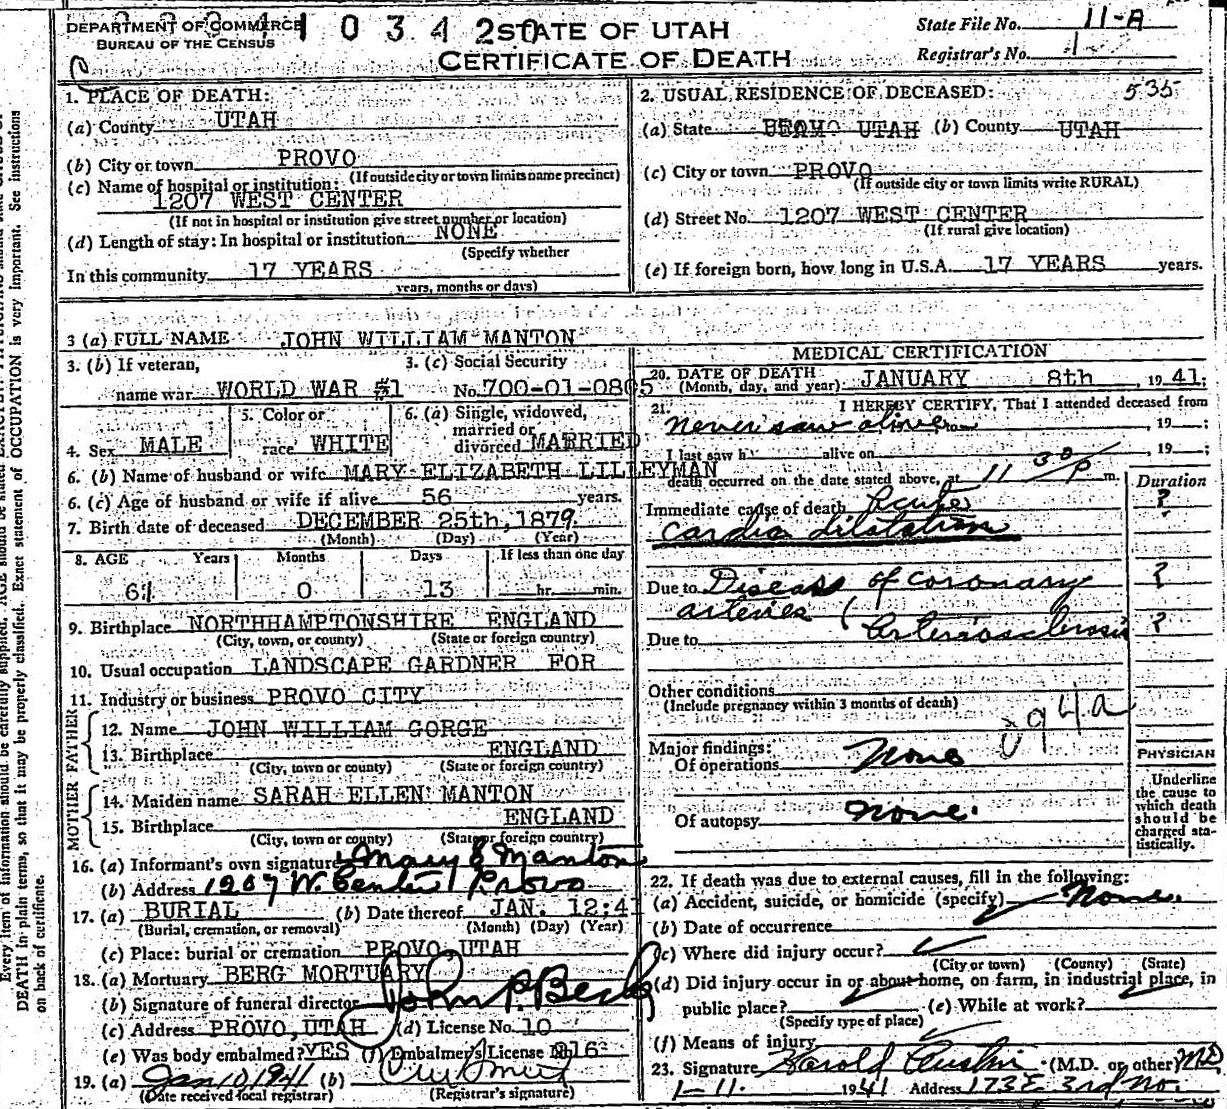 DEPARTMENT OF COMMERCE
BUREAU OF THE CENSUS
1 0 3 4 2 0
STATE OF UTAH
CERTIFICATE OF DEATH
State File No. 11-A
Registrar's No. 1
1. PLACE OF DEATH:
(a) County UTAH
(b) City or town PROVO
(If outside city or town limits name precinct)
(c) Name of hospital or institution:
1207 WEST CENTER
(If not in hospital or institution give street number or location)
(d) Length of stay: In hospital or institution NONE
(Specify whether
In this community 17 YEARS
years, months or days)
2. USUAL RESIDENCE OF DECEASED: 535
(a) State UTAH (b) County UTAH
(c) City or town PROVO
(If outside city or town limits write RURAL)
(d) Street No. 1207 WEST CENTER
(If rural give location)
(e) If foreign born, how long in U.S.A. 17 YEARS years.
3 (a) FULL NAME JOHN WILLIAM MANTON
3. (b) If veteran,
name war WORLD WAR #1
3. (c) Social Security
No. 700-01-0805
4. Sex MALE
5. Color or
race WHITE
6. (a) Single, widowed,
married or
divorced MARRIED
6. (b) Name of husband or wife MARY ELIZABETH LILLEYMAN
6. (c) Age of husband or wife if alive 56 years.
7. Birth date of deceased DECEMBER 25th, 1879.
(Month) (Day) (Year)
8. AGE Years Months Days If less than one day
61 0 13 hr. min.
9. Birthplace NORTHHAMPTONSHIRE ENGLAND
(City, town, or county) (State or foreign country)
10. Usual occupation LANDSCAPE GARDNER FOR
11. Industry or business PROVO CITY
FATHER
12. Name JOHN WILLIAM GORGE
13. Birthplace ENGLAND
(City, town or county) (State or foreign country)
MOTHER
14. Maiden name SARAH ELLEN MANTON
15. Birthplace ENGLAND
(City, town or county) (State or foreign country)
16. (a) Informant's own signature Mary E Manton
(b) Address 1207 W. Center Provo
17. (a) BURIAL (b) Date thereof JAN. 12;41
(Burial, cremation, or removal) (Month) (Day) (Year)
(c) Place: burial or cremation PROVO, UTAH
18. (a) Mortuary BERG MORTUARY
(b) Signature of funeral director John P. Berg
(c) Address PROVO, UTAH (d) License No. 10
(e) Was body embalmed? YES (f) Embalmer's License 216
19. (a) Jan 10, 1941 (b)
(Date received local registrar) (Registrar's signature)
MEDICAL CERTIFICATION
20. DATE OF DEATH
(Month, day, and year) JANUARY 8th , 1941;
21. I HEREBY CERTIFY, That I attended deceased from
Never saw alive , 19 ;
I last saw h alive on , 19 ;
death occurred on the date stated above, at 11 30 P m.
Duration
Immediate cause of death Acute ?
cardia dilatation
Due to Disease of coronary ?
arteries (Arteriosclerosis ?
Due to
Other conditions
(Include pregnancy within 3 months of death)
094a
Major findings:
Of operations None
Of autopsy none.
PHYSICIAN
Underline
the cause to
which death
should be
charged sta-
tistically.
22. If death was due to external causes, fill in the following:
(a) Accident, suicide, or homicide (specify) None.
(b) Date of occurrence
(c) Where did injury occur?
(City or town) (County) (State)
(d) Did injury occur in or about home, on farm, in industrial place, in
public place? (e) While at work?
(Specify type of place)
(f) Means of injury
23. Signature Harold Austin (M.D. or other) MD
1-11. 1941 Address 173 E 3rd No.
Every item of information should be carefully supplied. AGE should be stated EXACTLY.
DEATH in plain terms, so that it may be properly classified. Exact statement of OCCUPATION is very important. See instructions
on back of certificate.